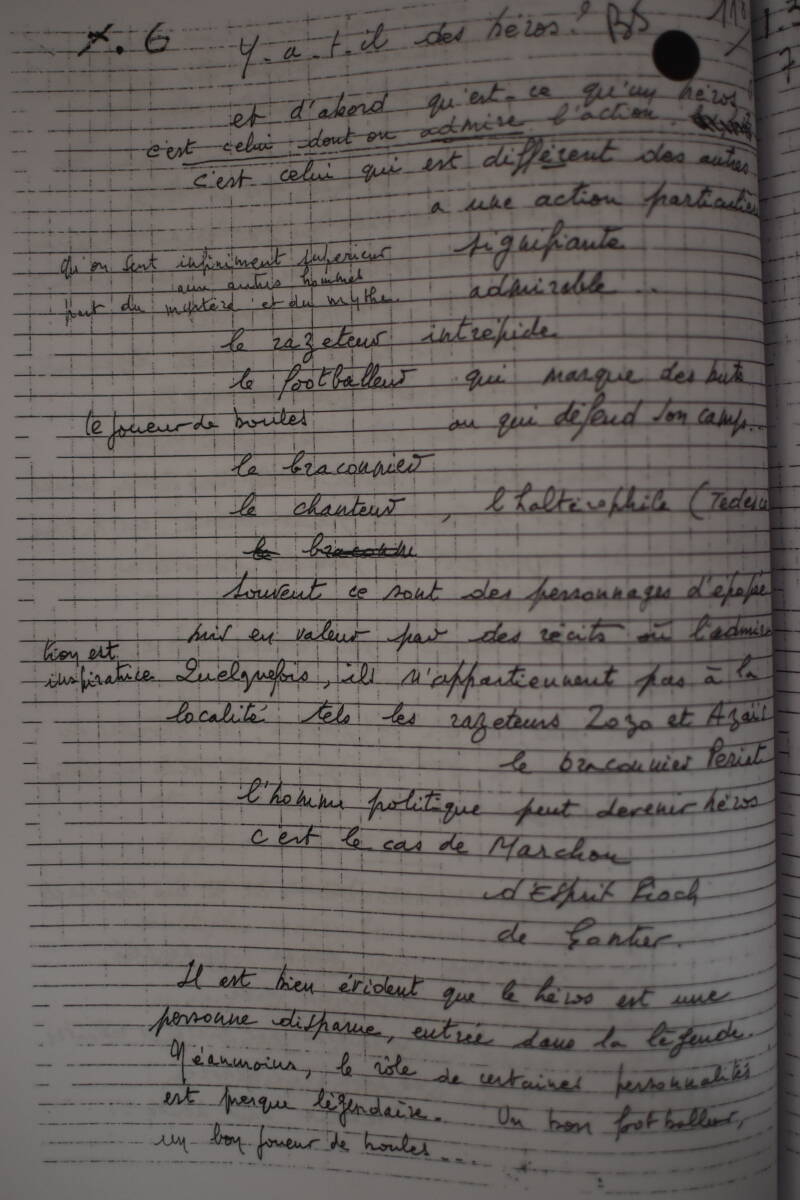 X. 6
Y-a-t-il des héros? BS 111
et d'abord qu'est-ce qu'un héros
c'est celui dont on admire l'action.
c'est celui qui est différent des autres
a une action particulièr
signifiante
qu'on sent infiniment supérieur
aux autres hommes
part du mystère et du mythe.
admirable...
le razeteur intrépide
le footballeur qui marque des buts
le joueur de boules ou qui défend son camp...
le braconnier
le chanteur, l'haltérophile (Tedesc
le braconn
Souvent ce sont des personnages d'épopée
mis en valeur par des récits où l'admira
tion est
inspiratrice. Quelquefois, ils n'appartiennent pas à la
localité tels les razeteurs Zozo et
le braconnier
l'homme politique peut devenir héros
c'est le cas de Marchou
d'Esprit Pioch
de
Il est bien évident que le héros est une
personne disparue, entrée dans la légende.
Néanmoins, le rôle de certaines personnalités
est presque légendaire. Un bon footballeur,
un bon joueur de boules...